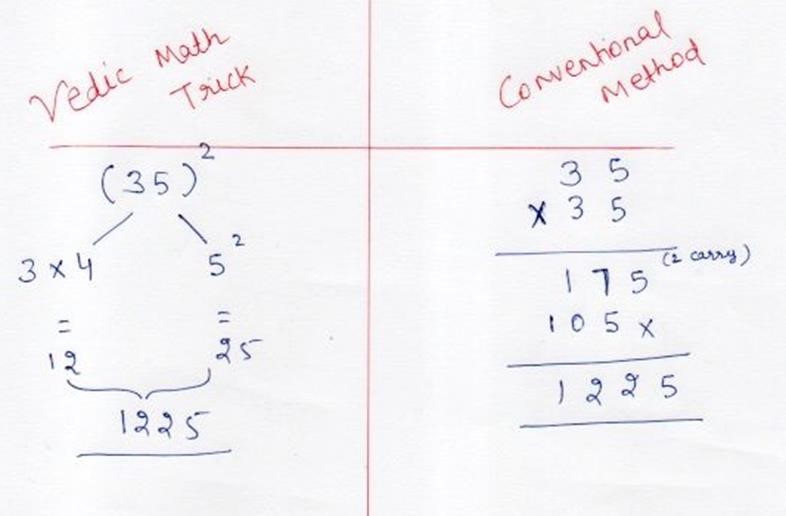 Vedic Math
Trick
(35)²
3 x 4 5²
= =
12 25
1225
Conventional
Method
3 5
x 3 5
1 7 5 (2 carry)
1 0 5 x
1 2 2 5